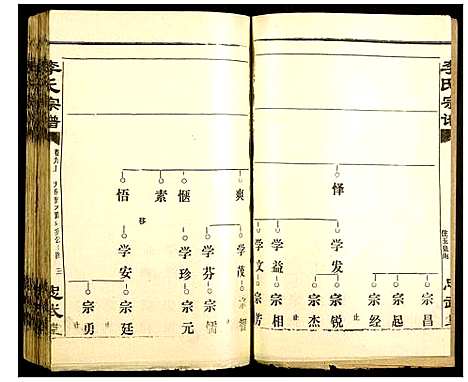 李氏宗谱
怿
学发 学益 学文
宗昌 宗起 宗经 止 宗锐 宗杰 止 宗相 宗芳
爽 惬 素 悟
移
学茂 学芬 学珍 学安
宗智 宗儒 止 宗元 宗廷 宗勇 止
李氏宗谱
忠武堂